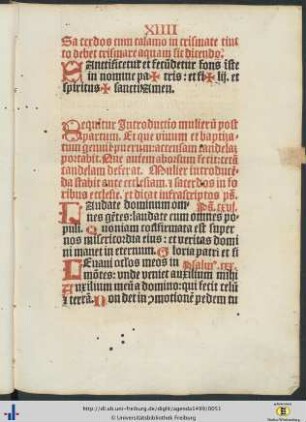 XIIII
Sacerdos cum calamo in crismate tinc
to debet crismare aquam sic dicendo.
SAnctificetur et fecūdetur fons iste
in nomine pa✠tris: et fi✠lij. et
spiritus✠sancti Amen.
Sequitur Introductio mulierū post
partum. Et que viuum et baptisa
tum genuit puerum: accensam candelā
portabit. Que autem abortum fecit: certā
candelam deferat. Mulier introducē
da stabit ante ecclesiam. et sacerdos in fo
ribus ecclesie. et dicat infrascriptos ps.
LAudate dominum om
nes gētes: laudate eum omnes po
puli. Quoniam confirmata est super
nos misericordia eius: et veritas domi
ni manet in eternum. Gloria patri et fi
LEuaui oclos meos in
mōtes: unde veniet auxilium mihi
Auxilium meū a domino: qui fecit celū
et terrā. Non det in cōmotionē pedem tu
http://dl.ub.uni-freiburg.de/diglit/agenda1499/0051
© Universitätsbibliothek Freiburg